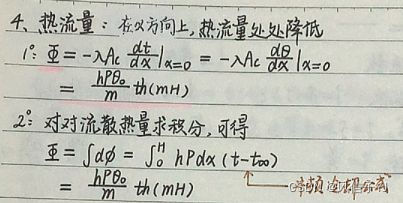 4、热流量：在x方向上,热流量处处降低
1°: Φ = -λAc dt/dx |x=0 = -λAc dθ/dx |x=0
= hPθ₀/m th(mH)
2°: 对对流散热量求积分,可得
Φ = ∫dφ = ∫₀ᴴ hPdx (t-t∞)
= hPθ₀/m th(mH) ← 牛顿冷却公式